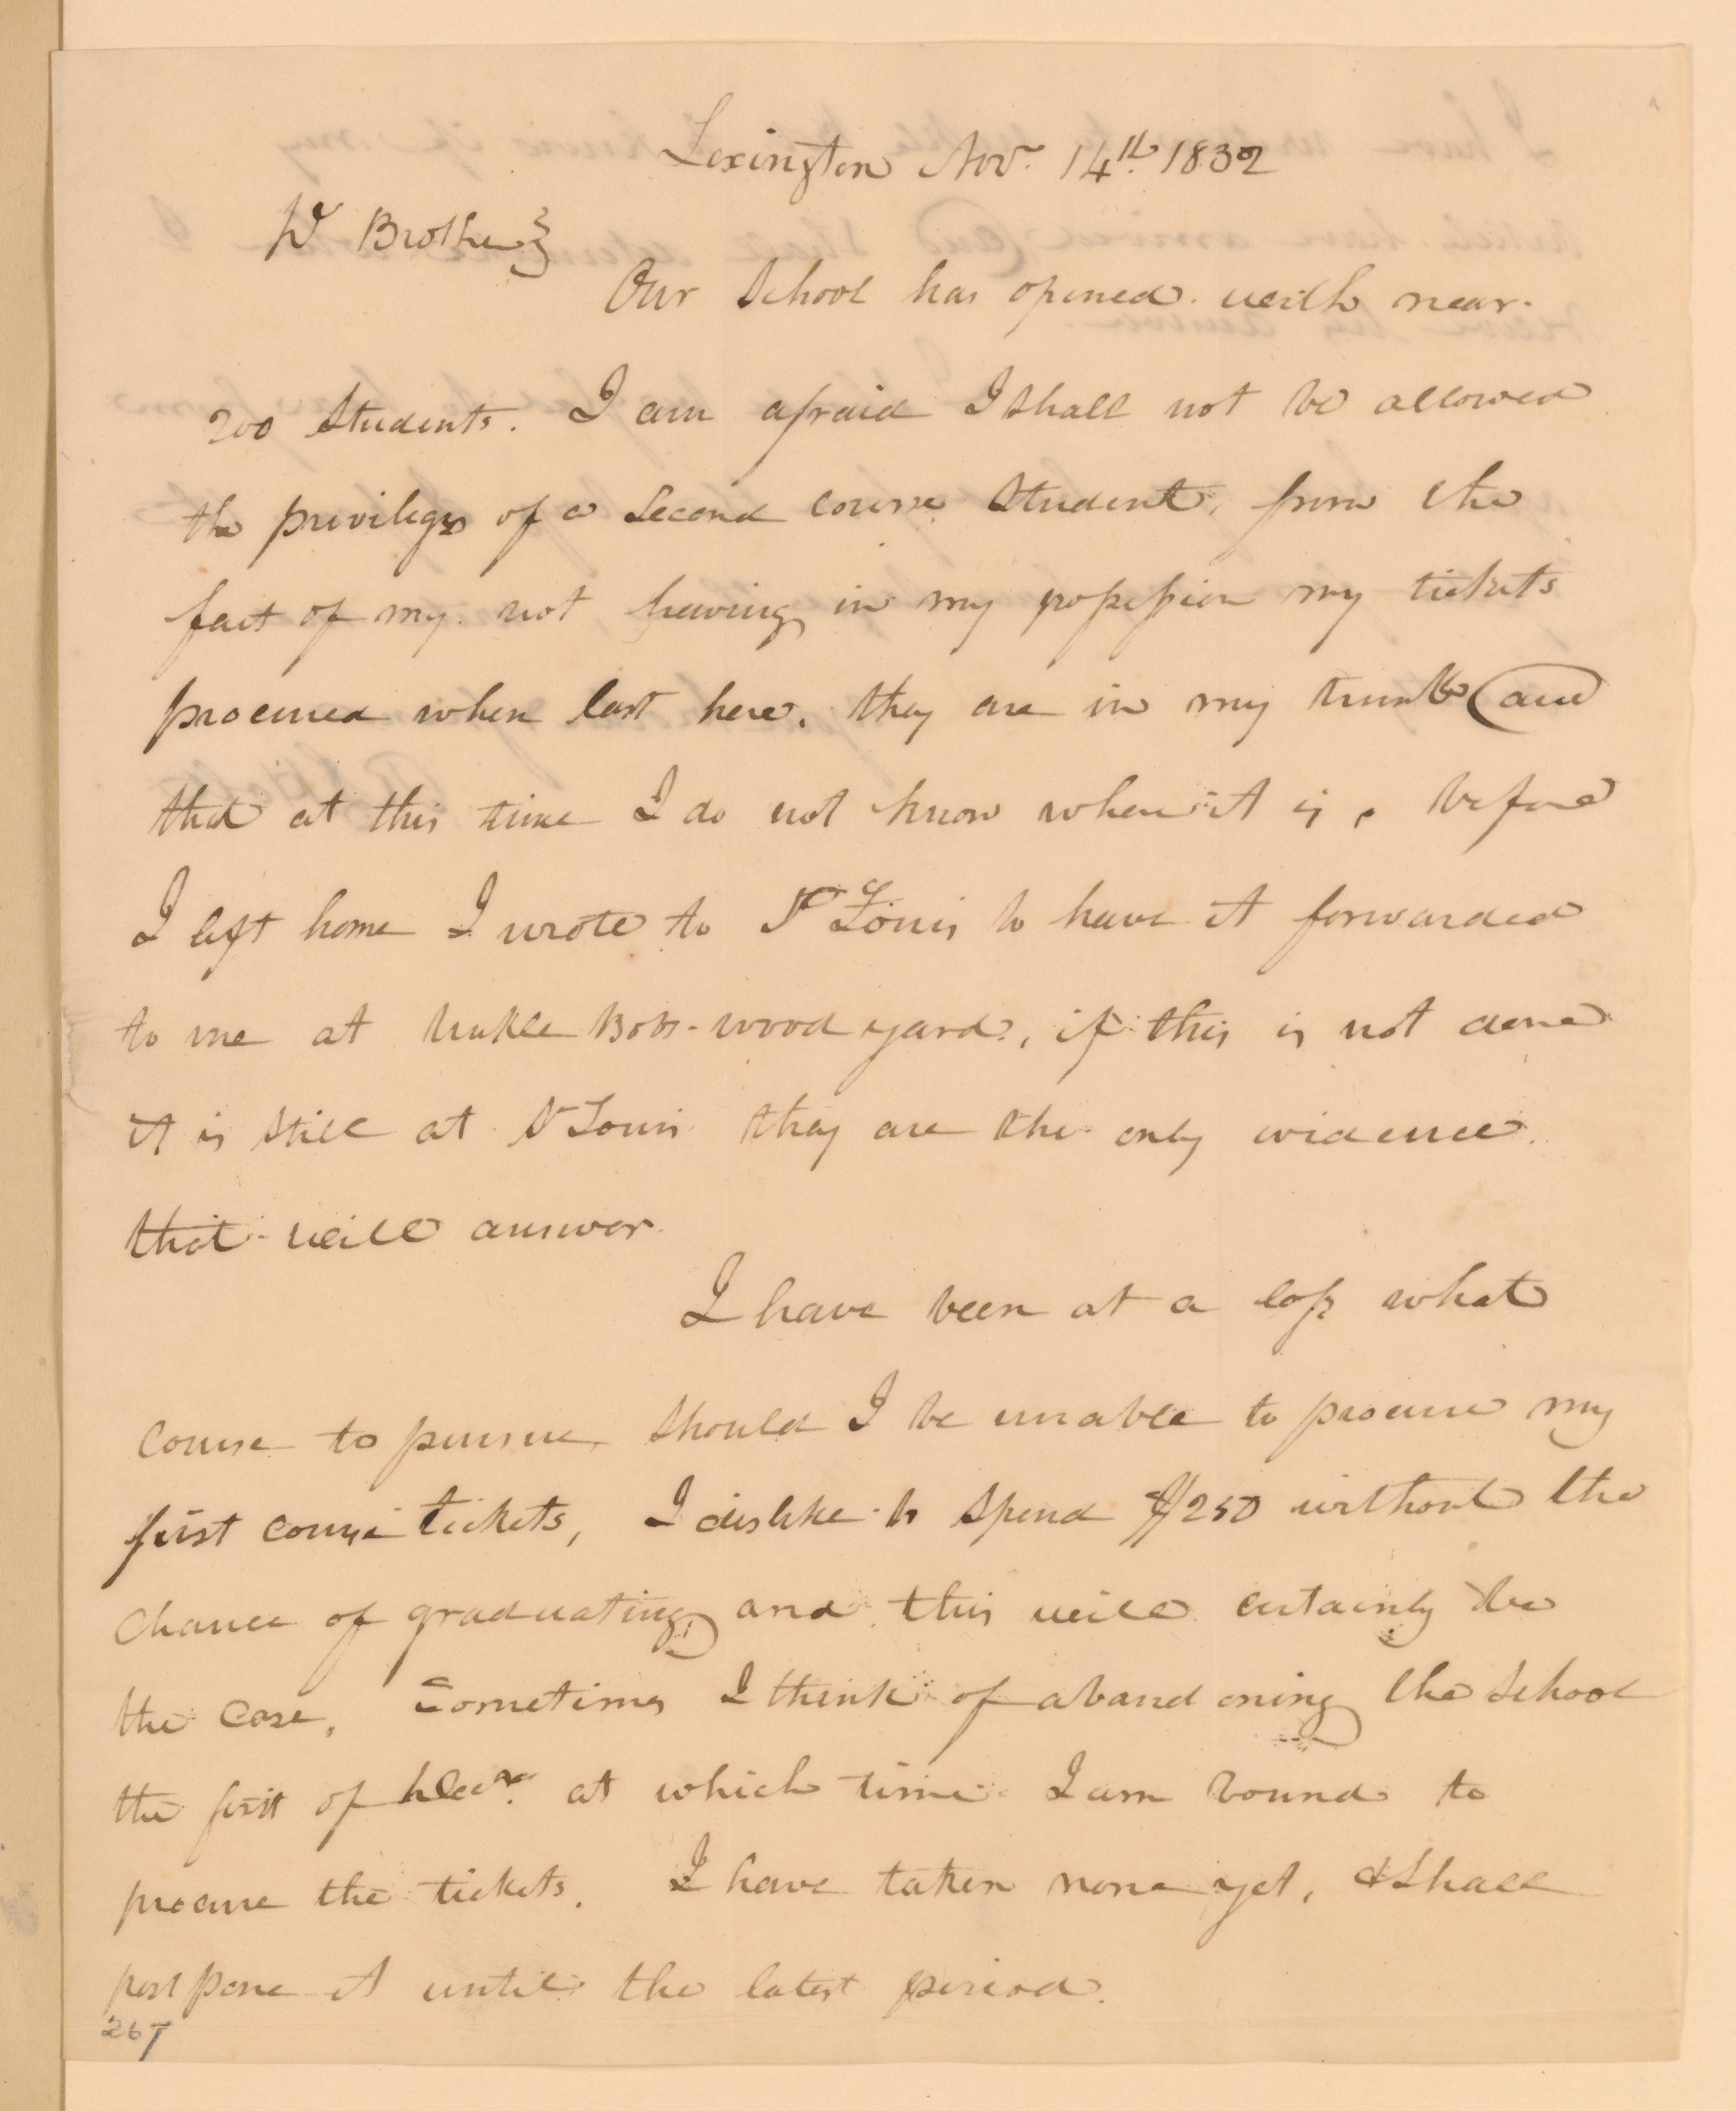 Lexington Nov. 14th. 1832
Dr Brother}
Our School has opened with near
200 Students. I am afraid I shall not be allowed
the privileges of a Second course Student, from the
fact of my not having in my possession my tickets
procured when last here. they are in my trunk and
that at this time I do not know where it is, before
I left home I wrote to St Louis to have it forwarded
to me at Unkle Bobs wood yard, if this is not done
it is still at St Louis they are the only evidence
that will answer.
I have been at a loss what
course to pursue, should I be unable to procure my
first course tickets, I dislike to spend $250 without the
chance of graduating, and this will certainly be
the case, Sometimes I think of abandoning the school
the first of Decr. at which time I am bound to
procure the tickets. I have taken none yet, & shall
post pone it until the latest period.
267